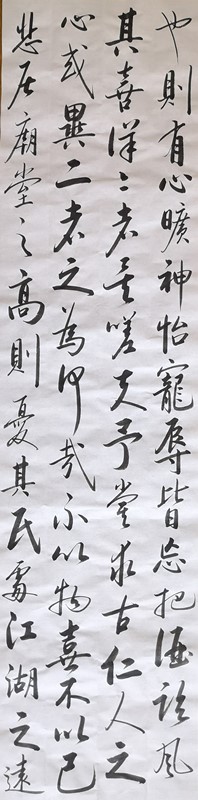 也則有心曠神怡寵辱皆忘把酒臨風
其喜洋〻者矣嗟夫予嘗求古仁人之
心或異二者之為何哉不以物喜不以己
悲居廟堂之高則憂其民處江湖之遠